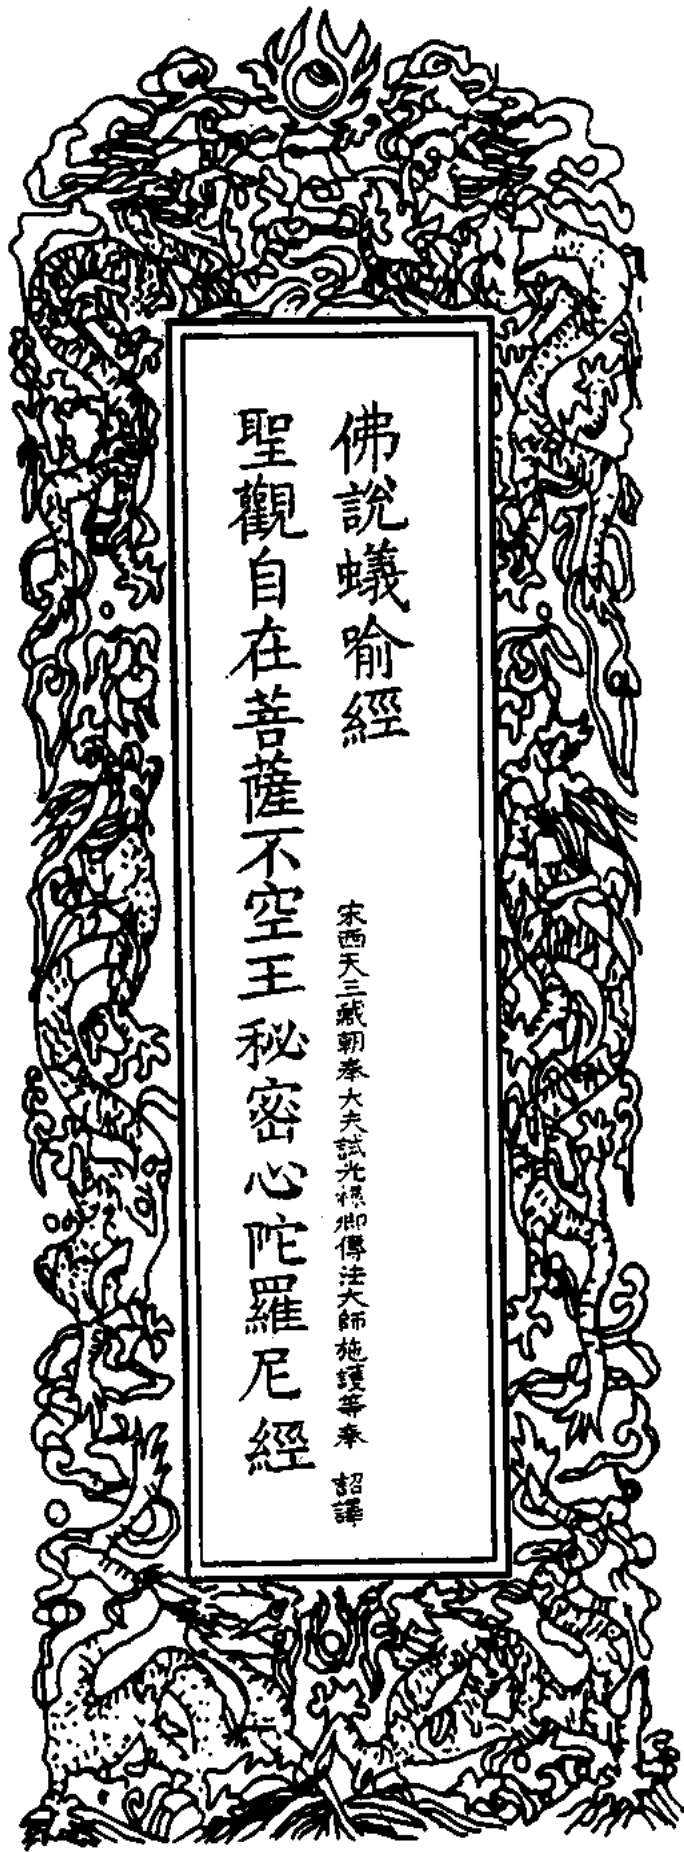 佛說蟻喻經
宋西天三藏朝奉大夫試光祿卿傳法大師施護等奉 詔譯
聖觀自在菩薩不空王秘密心陀羅尼經